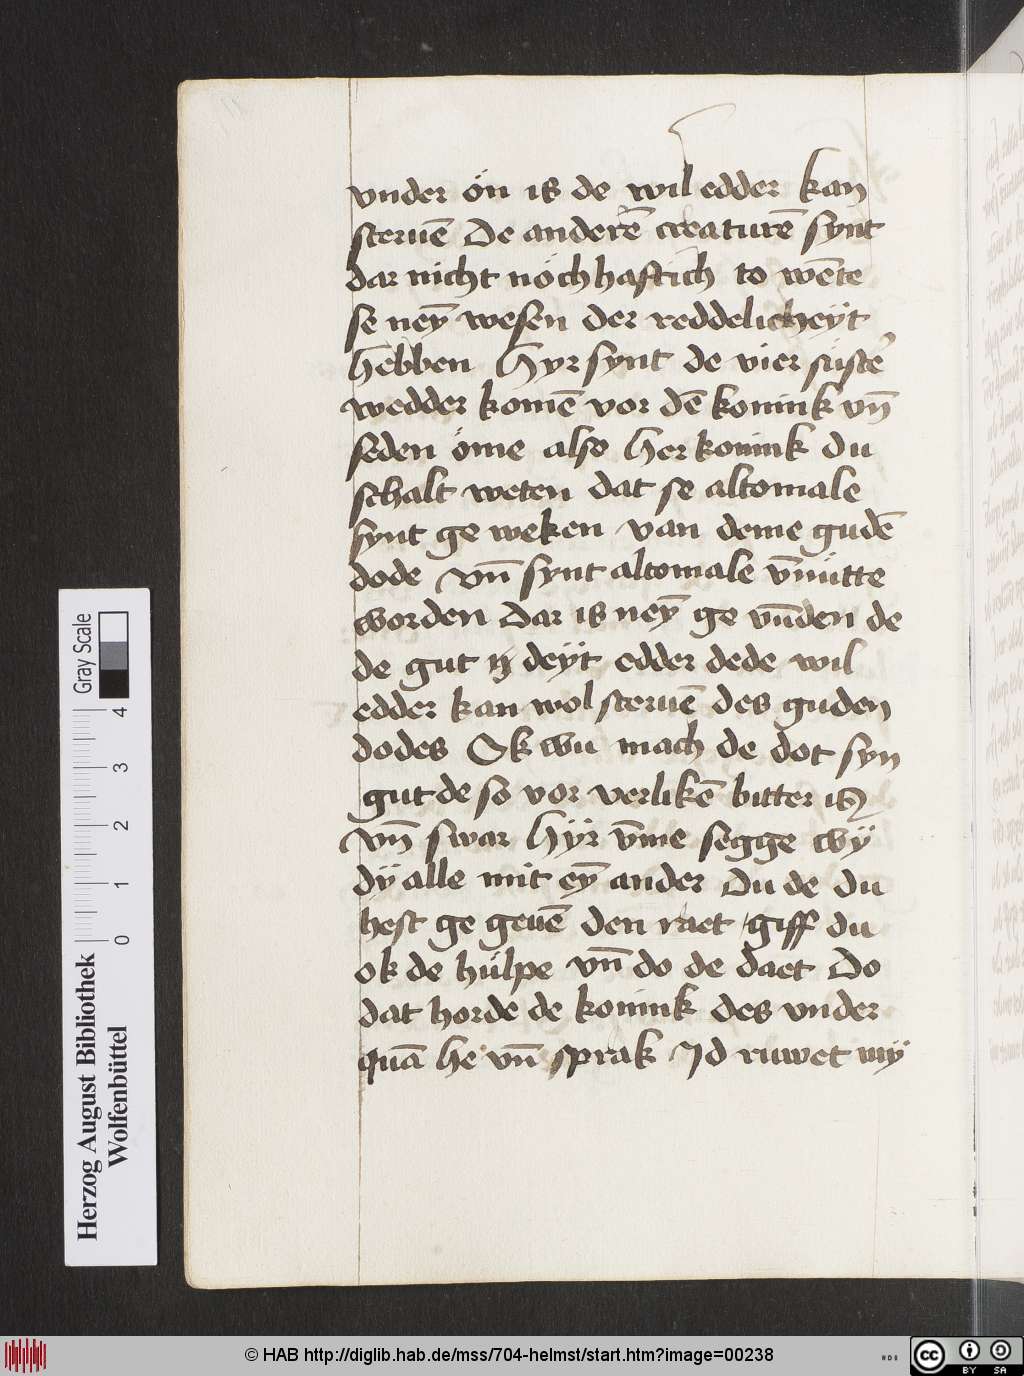 vnder ön is de wil edder kan
steruē De anderē creaturē synt
dar nicht nöchhaftich to wēte
se neÿ wesen der reddelicheÿt
hebben Hyr synt de vier süster
wedder komē vor dē konink vn̄
seden öme also Her konink du
schalt weten dat se altomale
synt ge weken van deme gudē
dode vn̄ synt altomale v̄nütte
worden Dar is neȳ ge vūden de
de gut deÿt edder dede wil
edder kan wol steruē des guden
dodes Ok wu mach de dot syn
gut de so vor verlikē bitter is
vn̄ swar Hÿr v̄me segge wÿ
dÿ alle mit eȳ ander Du de du
hest ge geuē den raet giff du
ok de hülpe vn̄ do de daet Do
dat horde de konink des vnder
quā he vn̄ sprak Id ruwet mÿ
Gray Scale
0 1 2 3 4
Herzog August Bibliothek
Wolfenbüttel
© HAB http://diglib.hab.de/mss/704-helmst/start.htm?image=00238
cc BY SA